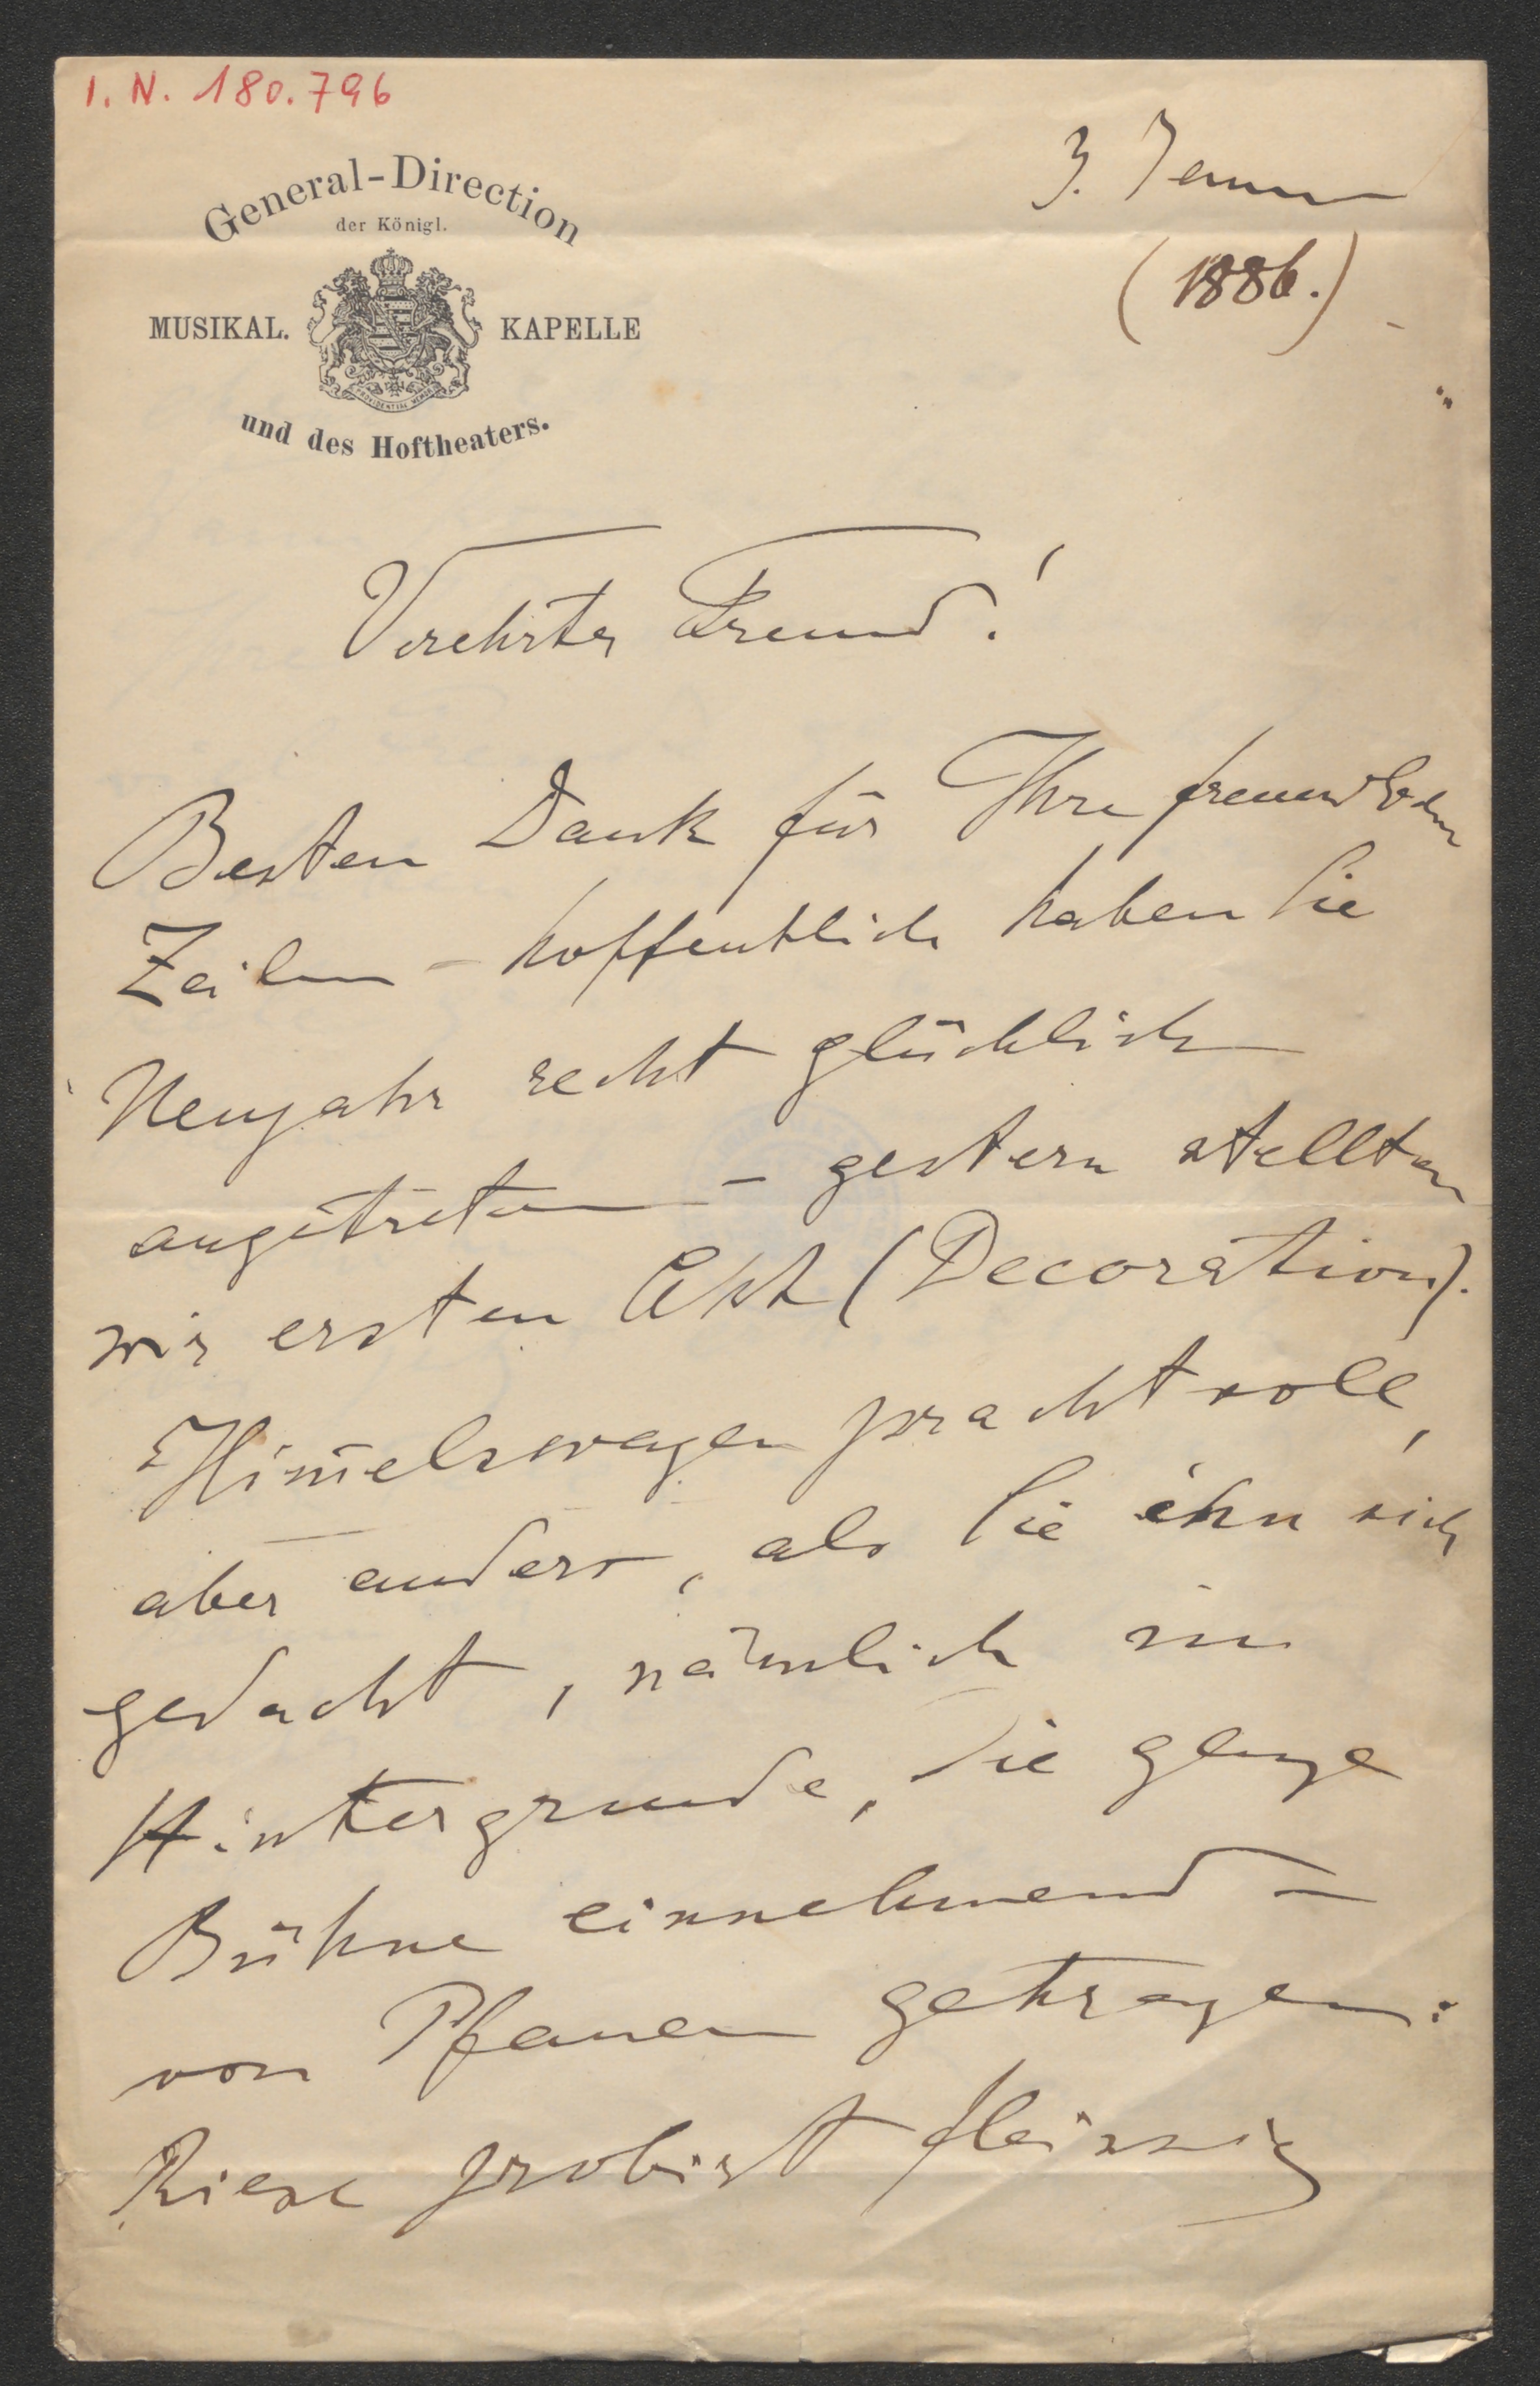 I. N. 180.796
General-Direction
der Königl.
MUSIKAL. KAPELLE
PROVIDENTIAE MEMOR
und des Hoftheaters.
3. Januar
(1886.)
Verehrter Freund!
Besten Dank für Ihre freundlichen
Zeilen - hoffentlich haben Sie
Neujahr recht glücklich
angetreten - gestern stellten
wir ersten Akt (Decoration).
Him̄elswagen prachtvoll,
aber anders, als Sie ihn sich
gedacht, nämlich im
Hintergrunde, die ganze
Bühne einnehmend -
von Pfauen getragen:
Riese probirt fleissig